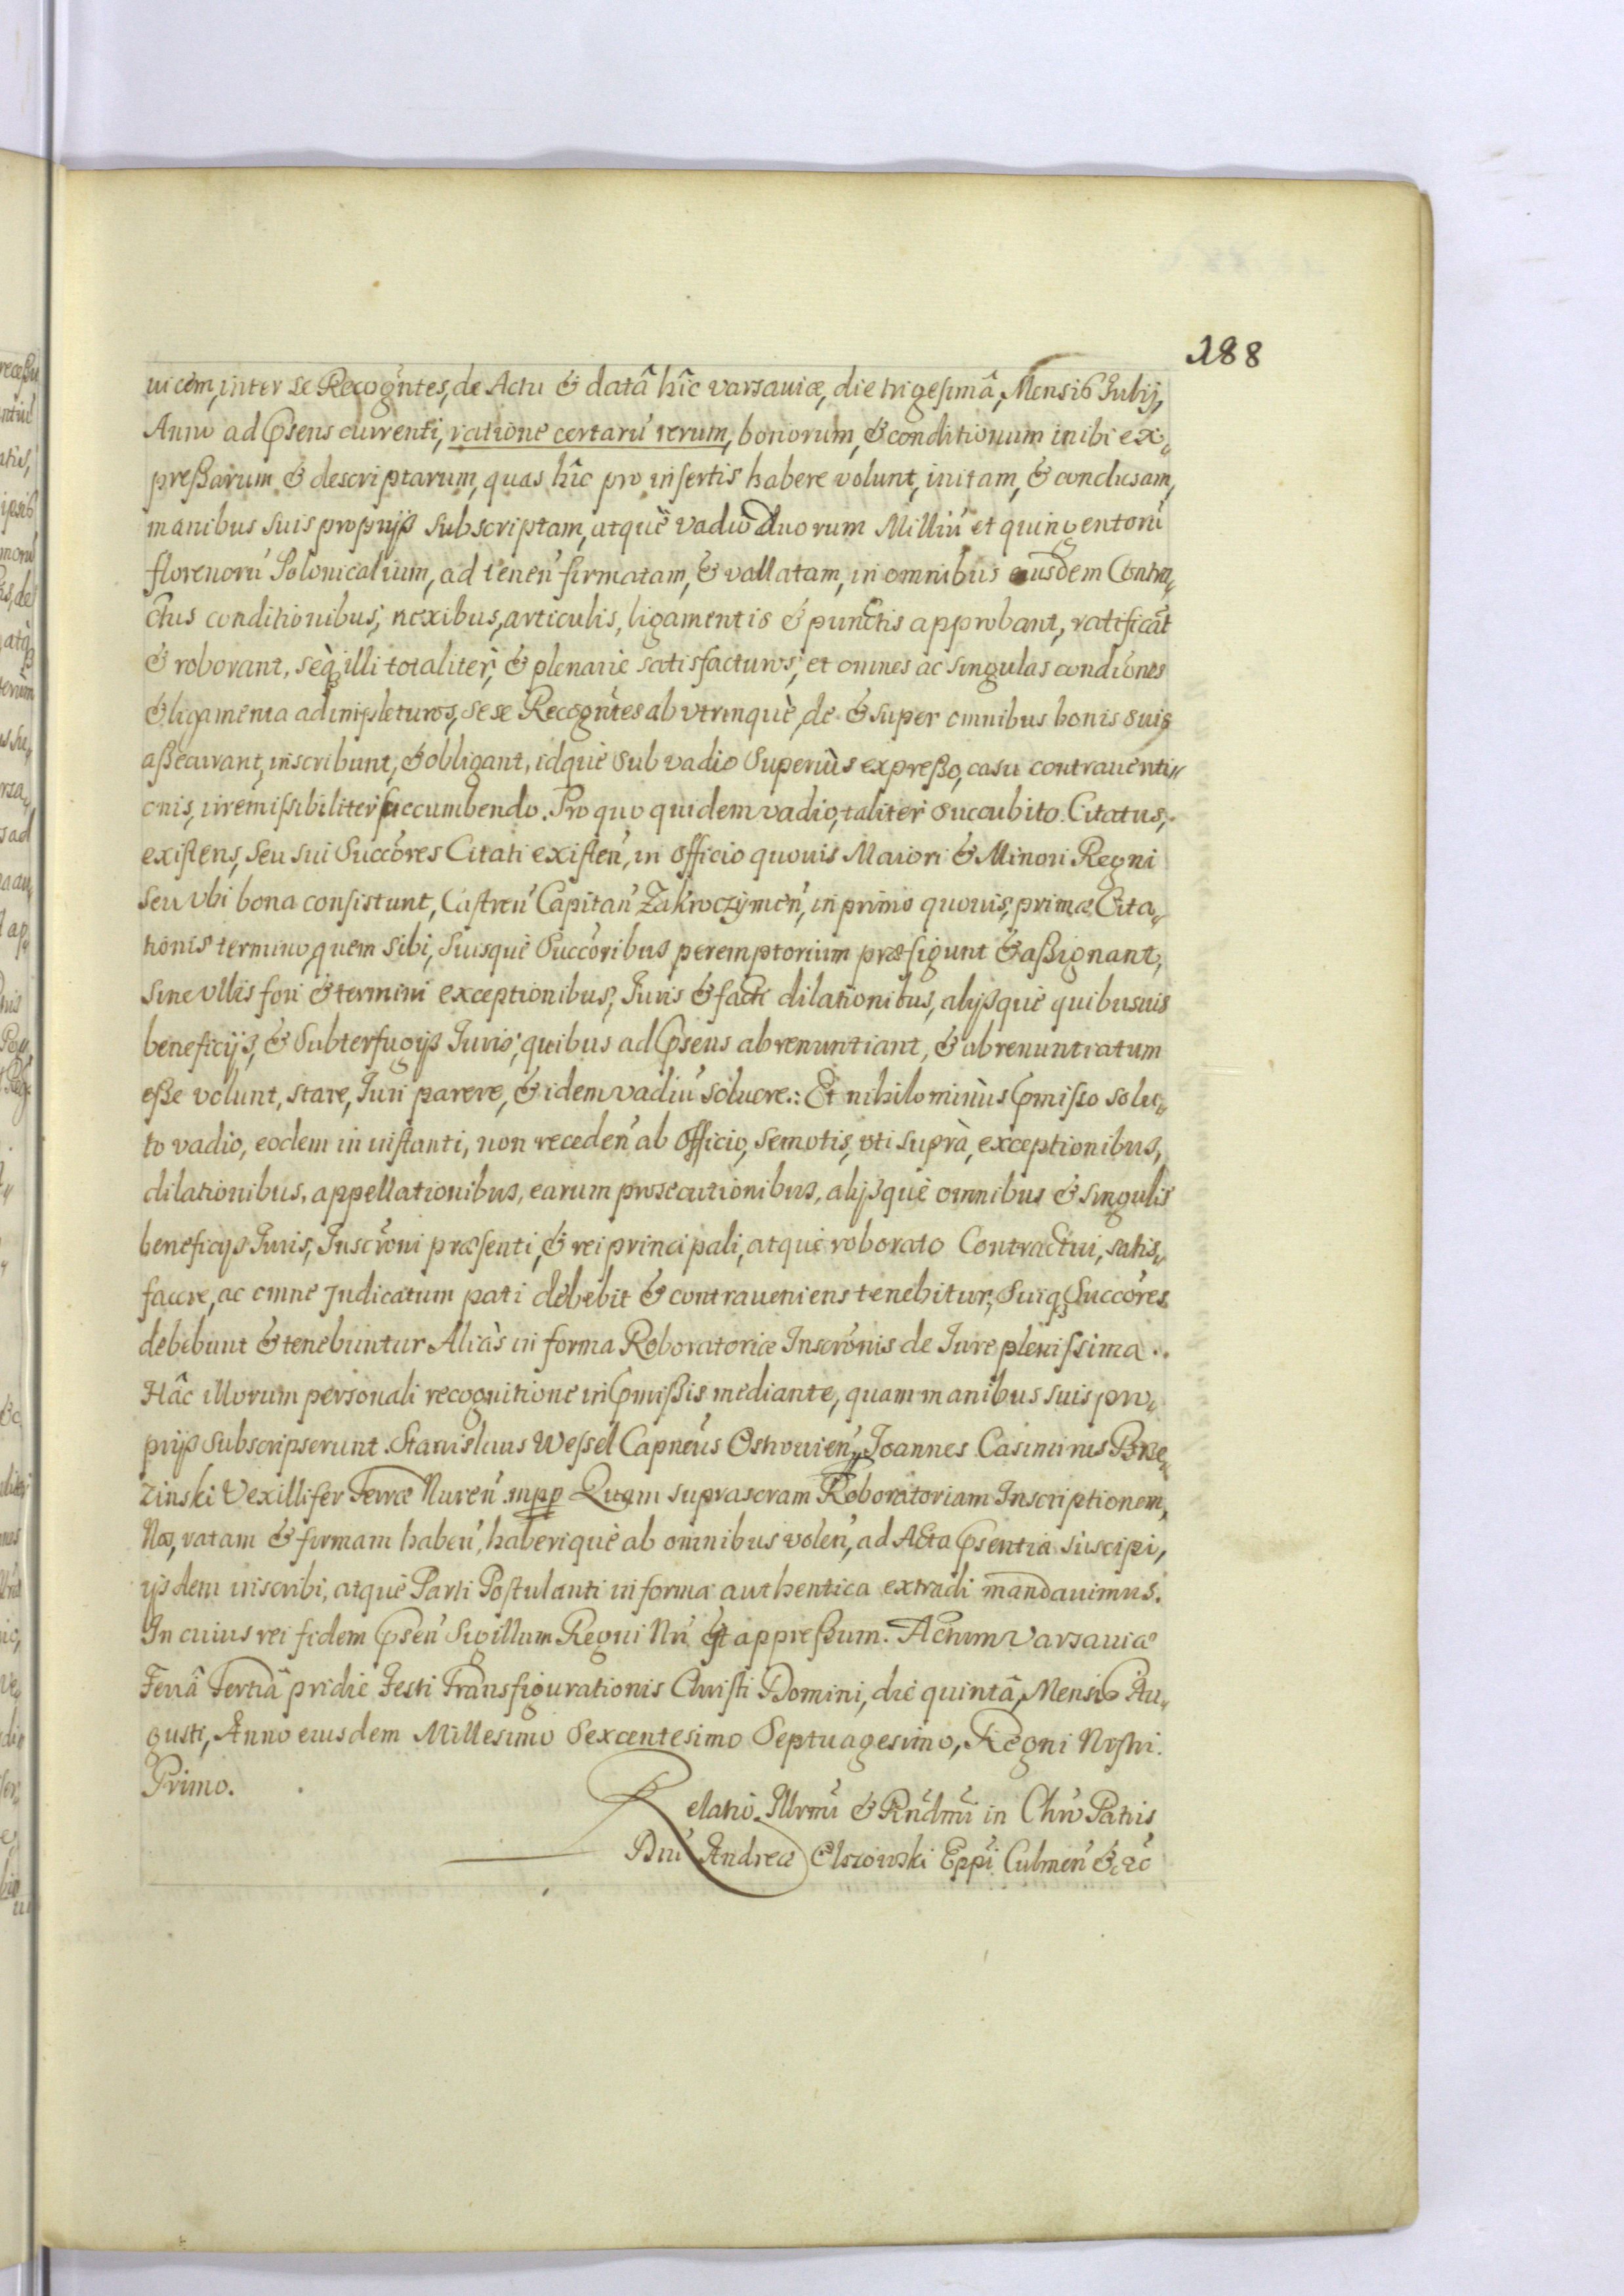 188
uicem, inter se Recogńtes, de Actu & datâ hîc varsauiæ, die trigesimâ, Mensis Iulij,
Anno ad p̃sens currenti, ratione certarú rerum, bonorum, & conditionum inibi ex-
preßarum & descriptarum, quas hîc pro insertis habere volunt, initam, & conclusam,
manibus suis proprijs subscriptam, atquè vadio duorum Milliú et quingentorú
florenorú Polonicalium, ad tenen' firmatam, & vallatam, in omnibus eiusdem Contra-
ctus conditionibus, nexibus, articulis, ligamentis & punctis approbant, ratificāt
& roborant, seq̀ illi totaliter, & plenariè satisfacturos, et omnes ac singulas condiónes
& ligamenta adimpleturos, sese Recogńtes ab vtrinquè, de & super omnibus bonis suis
aßecurant, inscribunt, & obligant, idquè sub vadio superiùs expreßo, casu contrauenti-
onis, irremissibiliter succumbendo. Pro quo quidem vadio, taliter succubito. Citatus,
existens, seu sui Succóres Citati existen', in officio quouis Maiori & Minori Regni
seu vbi bona consistunt, Castren' Capitan' Zakroczymen', in primo quouis, primæ Cita-
tionis termino, quem sibi, suisquè Succóribus peremptorium præfigunt & aßignant,
sine vllis fori & termini exceptionibus, Iuris & facti dilationibus, alijsquè quibusuis
beneficijs, & subterfugijs Iuris, quibus ad p̃sens abrenuntiant, & abrenuntiatum
eße volunt, stare, Iuri parere, & idem vadiú soluere: Et nihilominùs p̃misso solu-
to vadio, eodem in instanti, non receden' ab Officio, semotis, vti suprà, exceptionibus,
dilationibus, appellationibus, earum prosecutionibus, alijsquè omnibus & singulis
beneficijs Iuris, Inscróni præsenti, & rei principali, atquè roborato Contractui, satis-
facere, ac omne judicatum pati debebit & contraueniens tenebitur, Suiq; Succóres
debebunt & tenebuntur Aliàs in forma Roboratoriæ Inscrónis de Iure plenissima.
Hâc illorum personali recognitione in p̃mißis mediante, quam manibus suis pro-
prijs subscripserunt. Stanislaus Wessel Capneus Ostrouien', Joannes Casimirus Brze-
zinski Vexillifer Terræ Nuren' mpp Quam suprascram Roboratoriam Inscriptionem,
Nos, ratam & firmam haben', haberiquè ab omnibus volen', ad Acta p̃sentia suscipi,
ijsdem inscribi, atquè Parti Postulanti in forma authentica extradi mandauimus.
In cuius rei fidem p̃sen' Sigillum Regni Nri est appreßum. Actum Varsauiæ
Feriâ Tertiâ pridie Festi Transfigurationis Christi Domini, die quintâ, Mensis Au-
gusti, Anno eiusdem Millesimo Sexcentesimo Septuagesimo, Regni Nostri.
Primo.
Relatio Illrmi & Rndmi in Chro Patris
Dni Andreæ Olszowski Eppi Culmen' &c